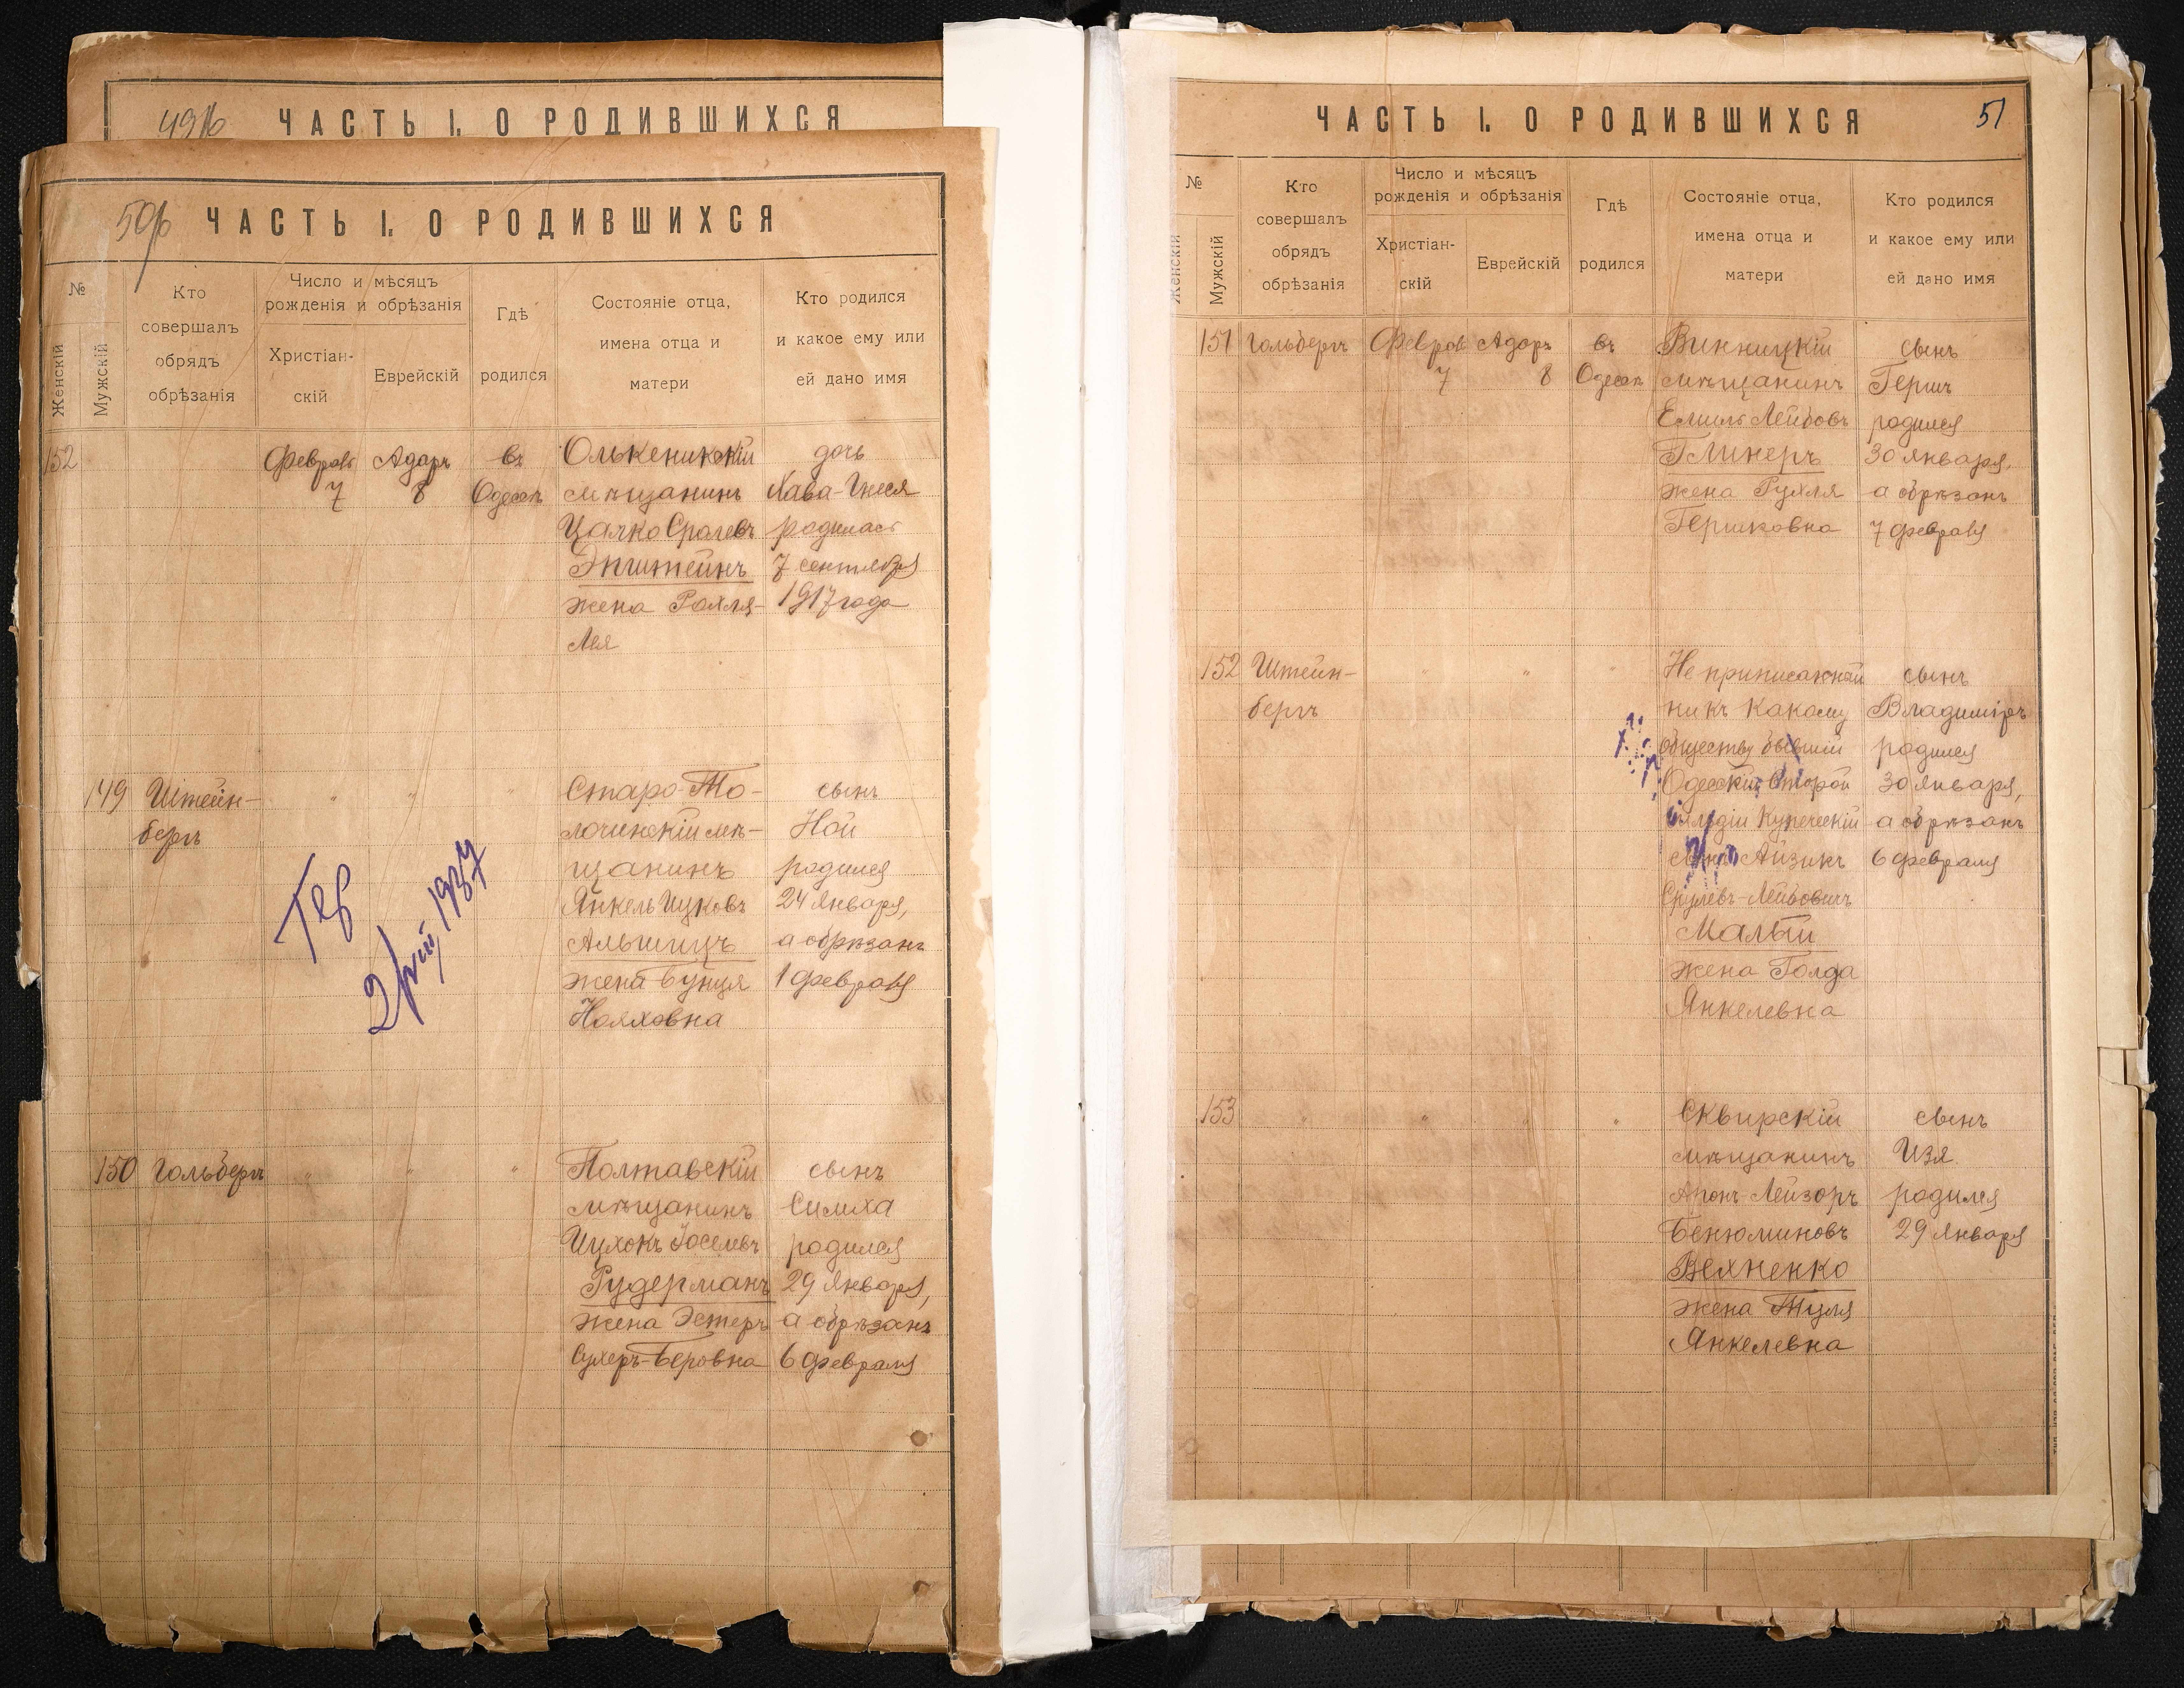 ЧАСТЬ I. О РОДИВШИХСЯ
ЧАСТЬ I. О РОДИВШИХСЯ
№
Женскій
Мужскій
Кто
совершалъ
обрядъ
обрѣзанія
Число и мѣсяцъ
рожденія и обрѣзанія
Христіан-
скій
Еврейскій
Гдѣ
родился
Состояніе отца,
имена отца и
матери
Кто родился
и какое ему или
ей дано имя
152
Февраль
7
Адаръ
8
въ
Одессѣ
Олькеникскій
мѣщанинъ
Цалко Сролевъ
Эпштейнъ
жена Рохля-
Лея
дочь
Хава-Гнеся
родилась
7 сентября
1917 года
149
Штейн-
бергъ
" " "
Старо-
мѣ-
щанинъ
Янкель Ицковъ
Альшицъ
жена Бунця
Нояховна
сынъ
Ной
родился
24 Января,
а обрѣзанъ
1 Февраля
1937
150
Гольбергъ
" " "
Полтавскій
мѣщанинъ
Ицхокъ Іоселевъ
Рудерманъ
жена Эстеръ
Сухеръ-Беровна
сынъ
Симха
родился
29 Января,
а обрѣзанъ
6 Февраля
ЧАСТЬ I. О РОДИВШИХСЯ
51
№
Женскій
Мужскій
Кто
совершалъ
обрядъ
обрѣзанія
Число и мѣсяцъ
рожденія и обрѣзанія
Христіан-
скій
Еврейскій
Гдѣ
родился
Состояніе отца,
имена отца и
матери
Кто родился
и какое ему или
ей дано имя
151
Гольбергъ
Феврал
7
Адаръ
8
въ
Одессѣ
Винницкій
мѣщанинъ
Емиль Лейбовъ
Глинеръ
жена Рухля
Гершковна
сынъ
Гершъ
родился
30 Января,
а обрѣзанъ
7 Февраля
152
Штейн-
бергъ
" " "
Не приписанный
ни къ какому
обществу бывшій
Одесскій второй
гильдіи Купеческій
сынъ Айзикъ
Срулевъ-Лейбовичъ
Малый
жена Голда
Янкелевна
сынъ
Владиміръ
родился
30 Января,
а обрѣзанъ
6 Февраля
153
" " " "
Сквирскій
мѣщанинъ
Аронъ Лейзоръ
Бенюминовъ
Вехненко
жена Туля
Янкелевна
сынъ
Изя
родился
29 Января